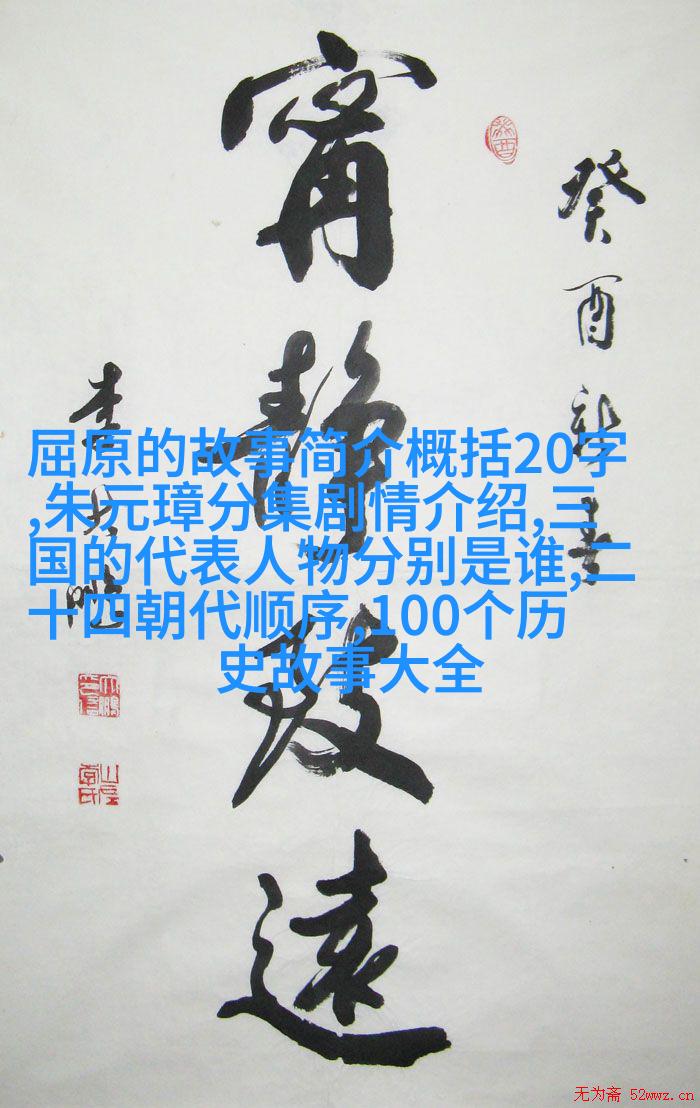 甯静致遠
癸酉新春
屈原的故事简介概括20字
,朱元璋分集剧情介绍,三
国的代表人物分别是谁,二
十四朝代顺序,100个历
史故事大全
无为斋 52wwz.cn